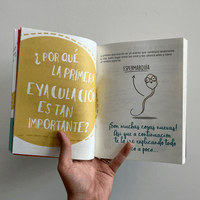 ¿POR QUÉ
LA PRIMERA
EYACULACIÓN
ES TAN
IMPORTANTE?
ESPERMARQUIA
¡Son muchas cosas nuevas!
Así que a continuación
te lo iré explicando todo
poco a poco...